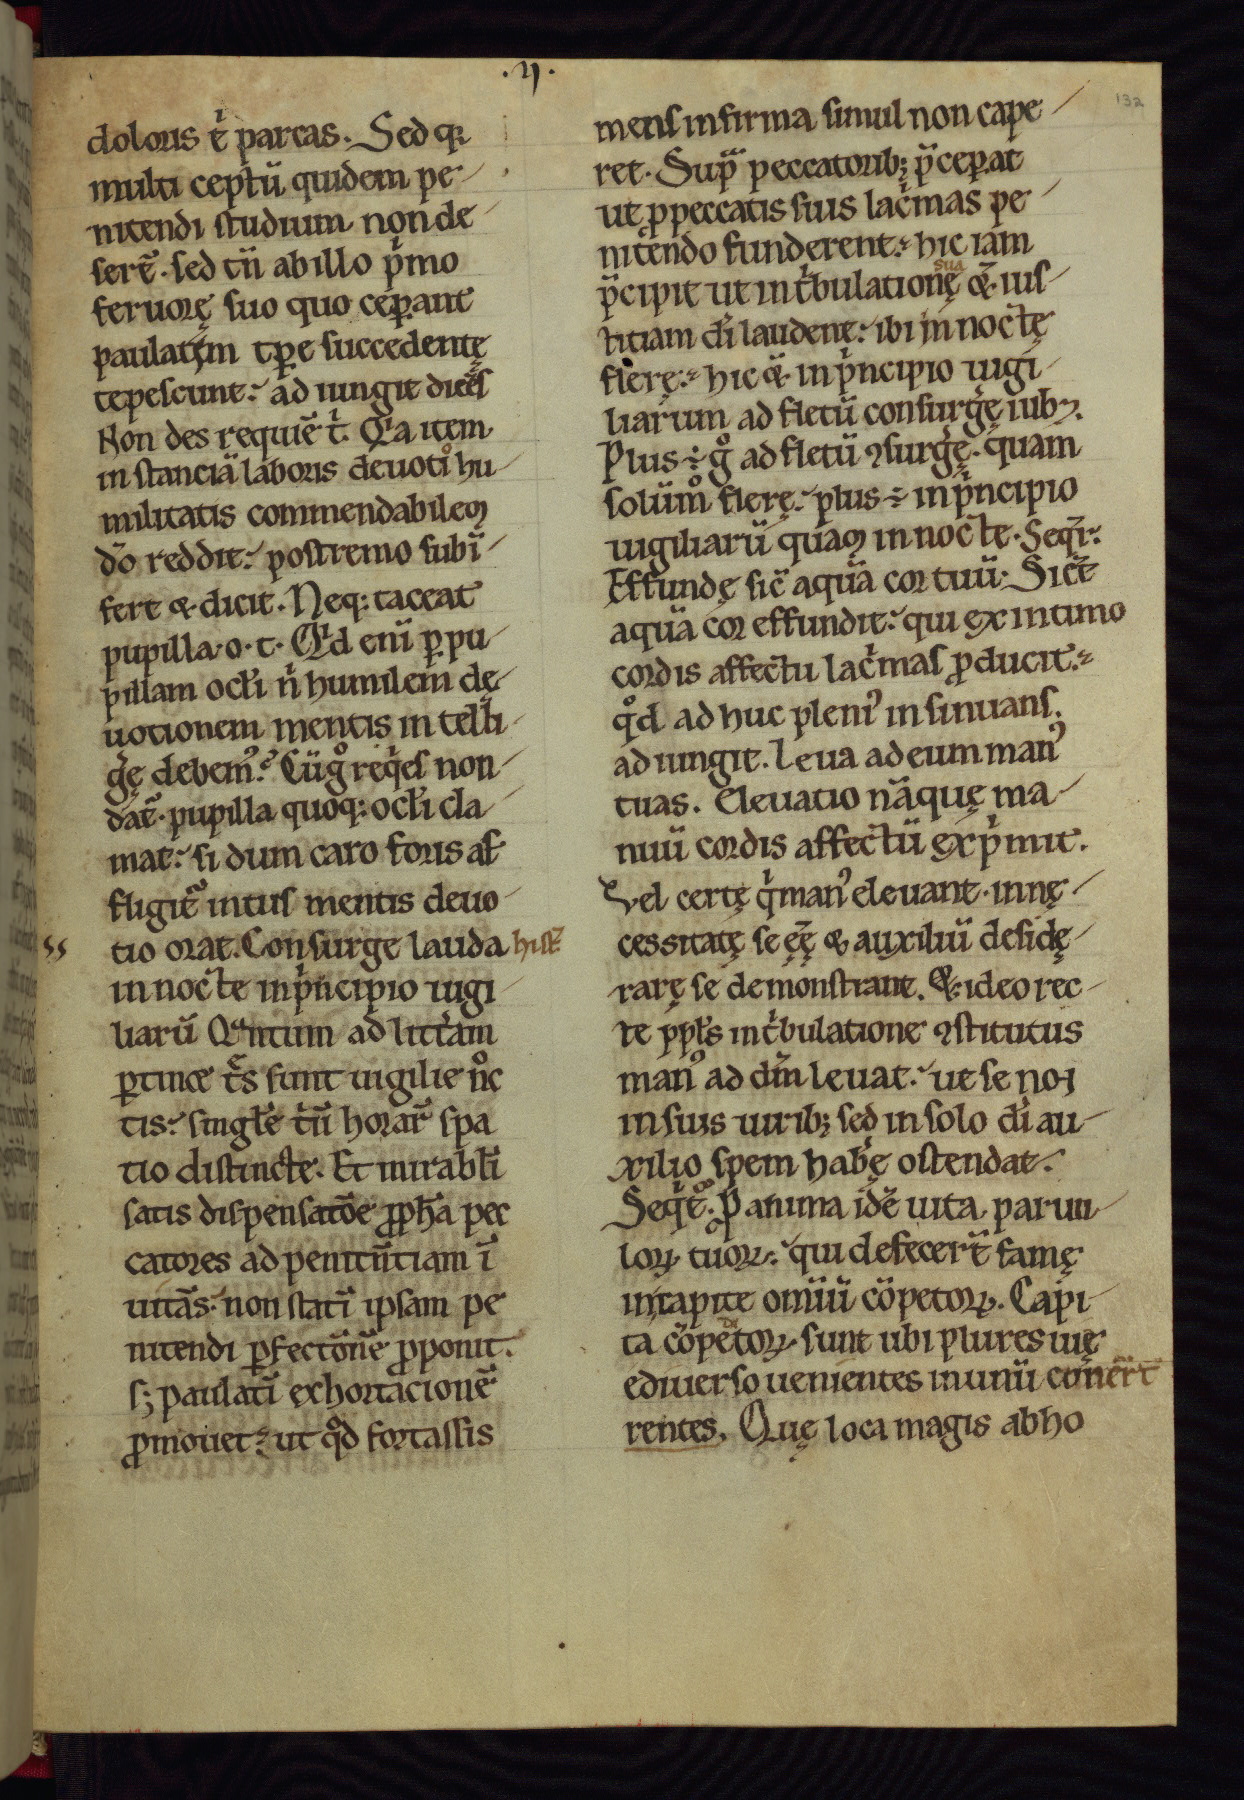 .II.
132
doloris t̾ parcas. Sed q;
multi ceptū quidem pe-
nitendi studium non de-
serē̄t. sed tn̄ ab illo p͛mo
feruorę suo quo ceꝑant
paulatim tꝑe succedentę
tepescunt. ad iungit dicēs
Non des requiē t͛. Q͛a item
in stanciā laboris deuoti hu-
militatis commendabilem
dō reddit. postremo subī-
fert & dicit. Neq; taceat
pupilla .o. t. Q͛d enī ꝑ pu-
pillam ocl̄i n͛ humilem dę-
uotionem mentis in tell̄i-
gę debem᾽. Cū g̊ req͛es non
dat̄. pupilla quoq; ocl̄i cla-
mat. si dum caro foris af-
fligit᷑ intus mentis deuo-
tio orat. Consurge lauda hist̄
in nocte in p͛ncipio uigi-
liarū Q̄ntum ad litt͛am
ꝑtinet t͛s sunt uigilie n̊c-
tis. singl̄e tn̄ horar᷑ spa-
tio distincte. Et mirabl̄i
satis dispensatōe ꝓph̄a pec-
catores ad penitn̄tiam ī-
uitās. non statī ipsam pe-
nitendi ꝑfectōnē ꝓponit.
s; paulatī exhortacionē
ꝓmouet. ut q̊d fortassis
mens infirma simul non cape-
ret. Sup̄ peccatorib; p̄ceꝑat
ut ꝓ peccatis suis lac͛mas pe-
nitendo funderent. hic iam
p̄cipit ut in t͛bulationę sua & ius-
titiam dī laudent. ibi in noctę
flerę. hic & in p͛ncipio uigi-
liarum ad fletū consurg͛ę iubꝫ.
Plus ÷ g̊ ad fletū ꝯsurg͛ę. quam
solūm̊ flerę. plus ÷ in p͛ncipio
uigiliarū quam in nocte. Seq͛r.
Effundę sic̄ aquā cor tuū. Sic̄t
aquā cor effundit. qui ex intimo
cordis affectu lac͛mas ꝓducit.
q̊d ad huc pleni᾽ in sinuans.
ad iungit. Leua ad eum man᾽
tuas. Eleuatio nāquę ma-
nuū cordis affectū exp͛mit.
Vel certę q͛ man᾽ eleuant. in nę-
cessitatę se eę̄ & auxiliū desidę-
rarę se demonstrant. & ideo rec-
te ppl̄s in t͛bulatione ꝯstitutus
man᾽ ad dm̄ leuat. ut se non
in suis uirib; sed in solo dī au-
xilio spem hab͛ę ostendat.
Seq͛t᷑. P̱ anima idē uita paruu-
loꝝ tuoꝝ. qui defecer̄t famę
in capite omīū cōpetoꝝ. Capi-
ta cōpetoꝝ sunt ubi plures uię
ediuerso uenientes in unū conēr̄t
rentes. Quę loca magis ab ho